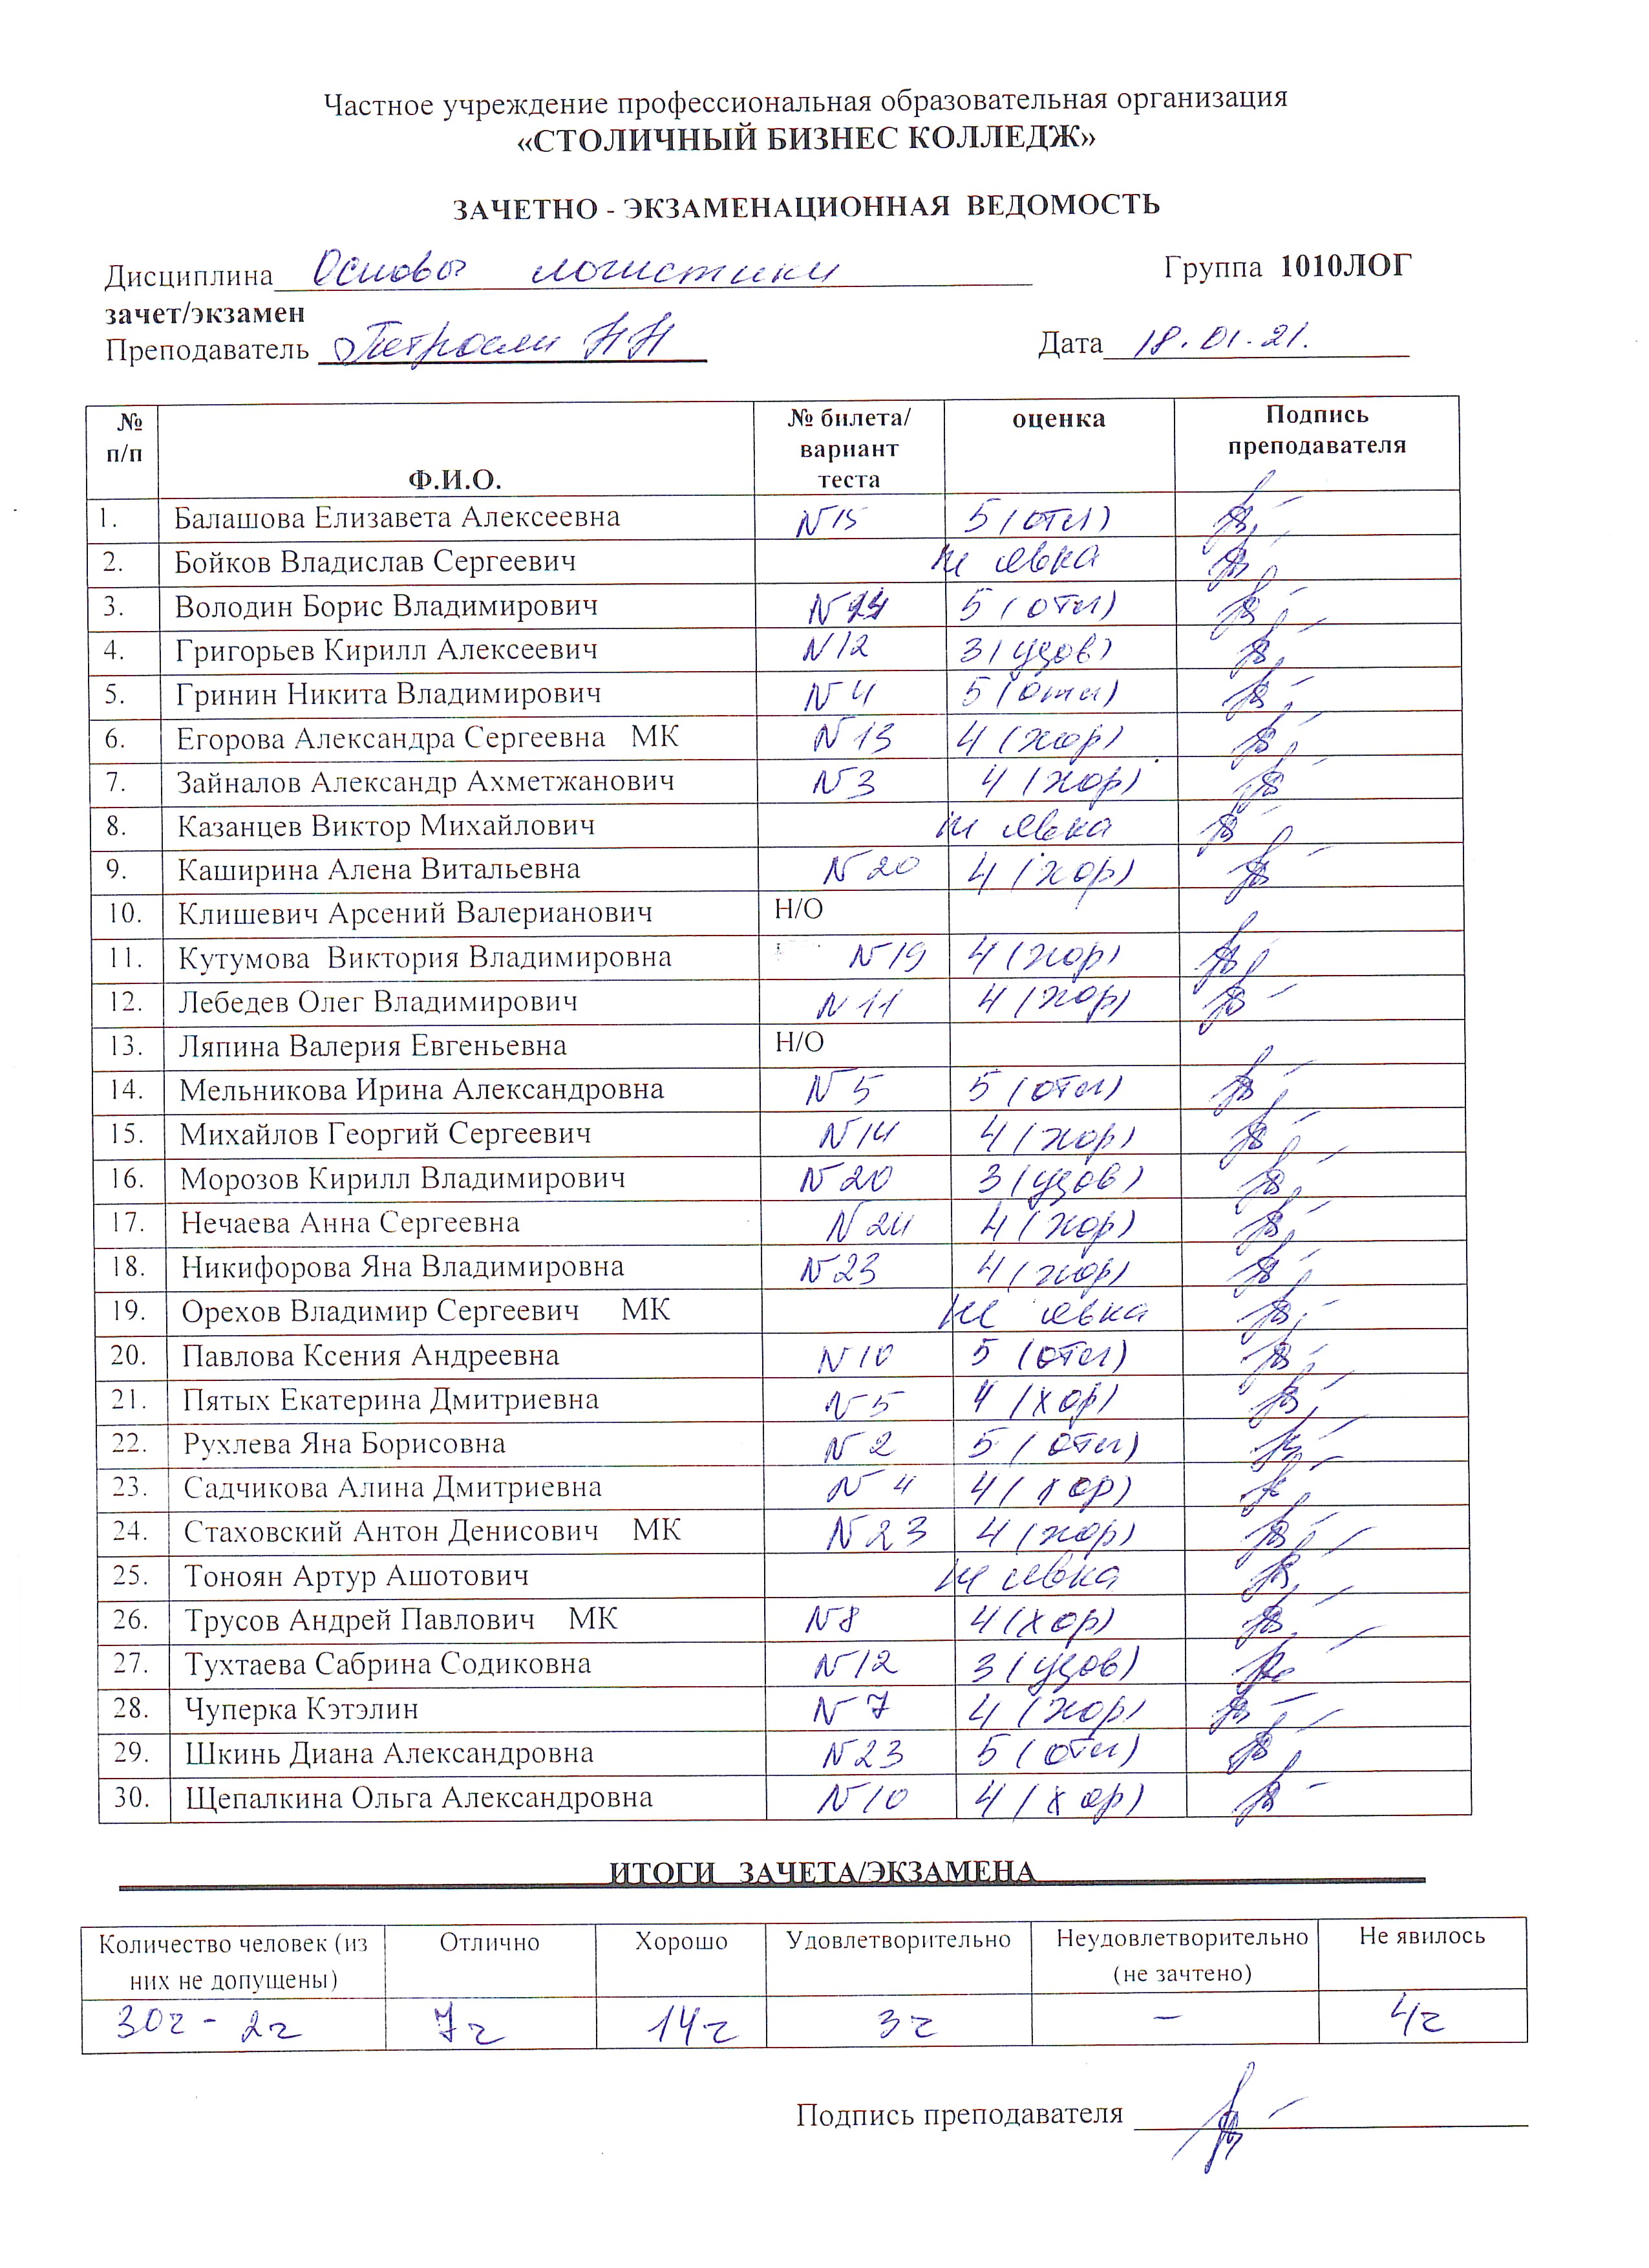 Частное учреждение профессиональная образовательная организация
«СТОЛИЧНЫЙ БИЗНЕС КОЛЛЕДЖ»
ЗАЧЕТНО - ЭКЗАМЕНАЦИОННАЯ ВЕДОМОСТЬ
Дисциплина Основы логистики Группа 1010ЛОГ
зачет/экзамен
Преподаватель НН Дата 18.01.21.
№ п/п Ф.И.О. № билета/ вариант теста оценка Подпись преподавателя
1. Балашова Елизавета Алексеевна N15 5 (отл)
2. Бойков Владислав Сергеевич не явка
3. Володин Борис Владимирович 5 (отл)
4. Григорьев Кирилл Алексеевич N12 3 (удов)
5. Гринин Никита Владимирович N4 5 (отл)
6. Егорова Александра Сергеевна МК N13 4 (хор)
7. Зайналов Александр Ахметжанович N3 4 (хор)
8. Казанцев Виктор Михайлович не явка
9. Каширина Алена Витальевна N20 4 (хор)
10. Клишевич Арсений Валерианович Н/О
11. Кутумова Виктория Владимировна N19 4 (хор)
12. Лебедев Олег Владимирович N11 4 (хор)
13. Ляпина Валерия Евгеньевна Н/О
14. Мельникова Ирина Александровна N5 5 (отл)
15. Михайлов Георгий Сергеевич N14 4 (хор)
16. Морозов Кирилл Владимирович N20 3 (удов)
17. Нечаева Анна Сергеевна N24 4 (хор)
18. Никифорова Яна Владимировна N23 4 (хор)
19. Орехов Владимир Сергеевич МК не явка
20. Павлова Ксения Андреевна N10 5 (отл)
21. Пятых Екатерина Дмитриевна N5 4 (хор)
22. Рухлева Яна Борисовна N2 5 (отл)
23. Садчикова Алина Дмитриевна N4 4 (хор)
24. Стаховский Антон Денисович МК N23 4 (хор)
25. Тоноян Артур Ашотович не явка
26. Трусов Андрей Павлович МК N8 4 (хор)
27. Тухтаева Сабрина Содиковна N12 3 (удов)
28. Чуперка Кэтэлин N7 4 (хор)
29. Шкинь Диана Александровна N23 5 (отл)
30. Щепалкина Ольга Александровна N10 4 (хор)
ИТОГИ ЗАЧЕТА/ЭКЗАМЕНА
Количество человек (из них не допущены) Отлично Хорошо Удовлетворительно Неудовлетворительно (не зачтено) Не явилось
30ч - 2ч 7ч 14ч 3ч - 4ч
Подпись преподавателя